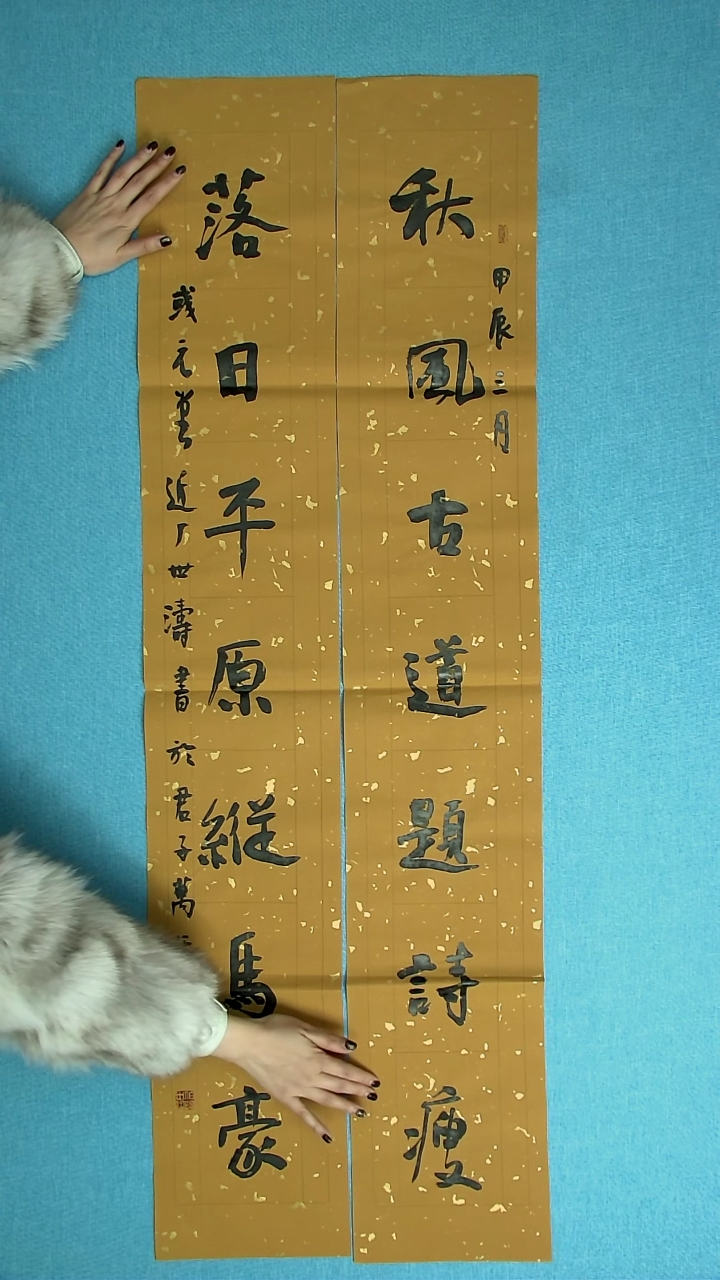 甲辰三月
秋風古道題詩瘦
落日平原縱馬豪
世濤書於君子萬